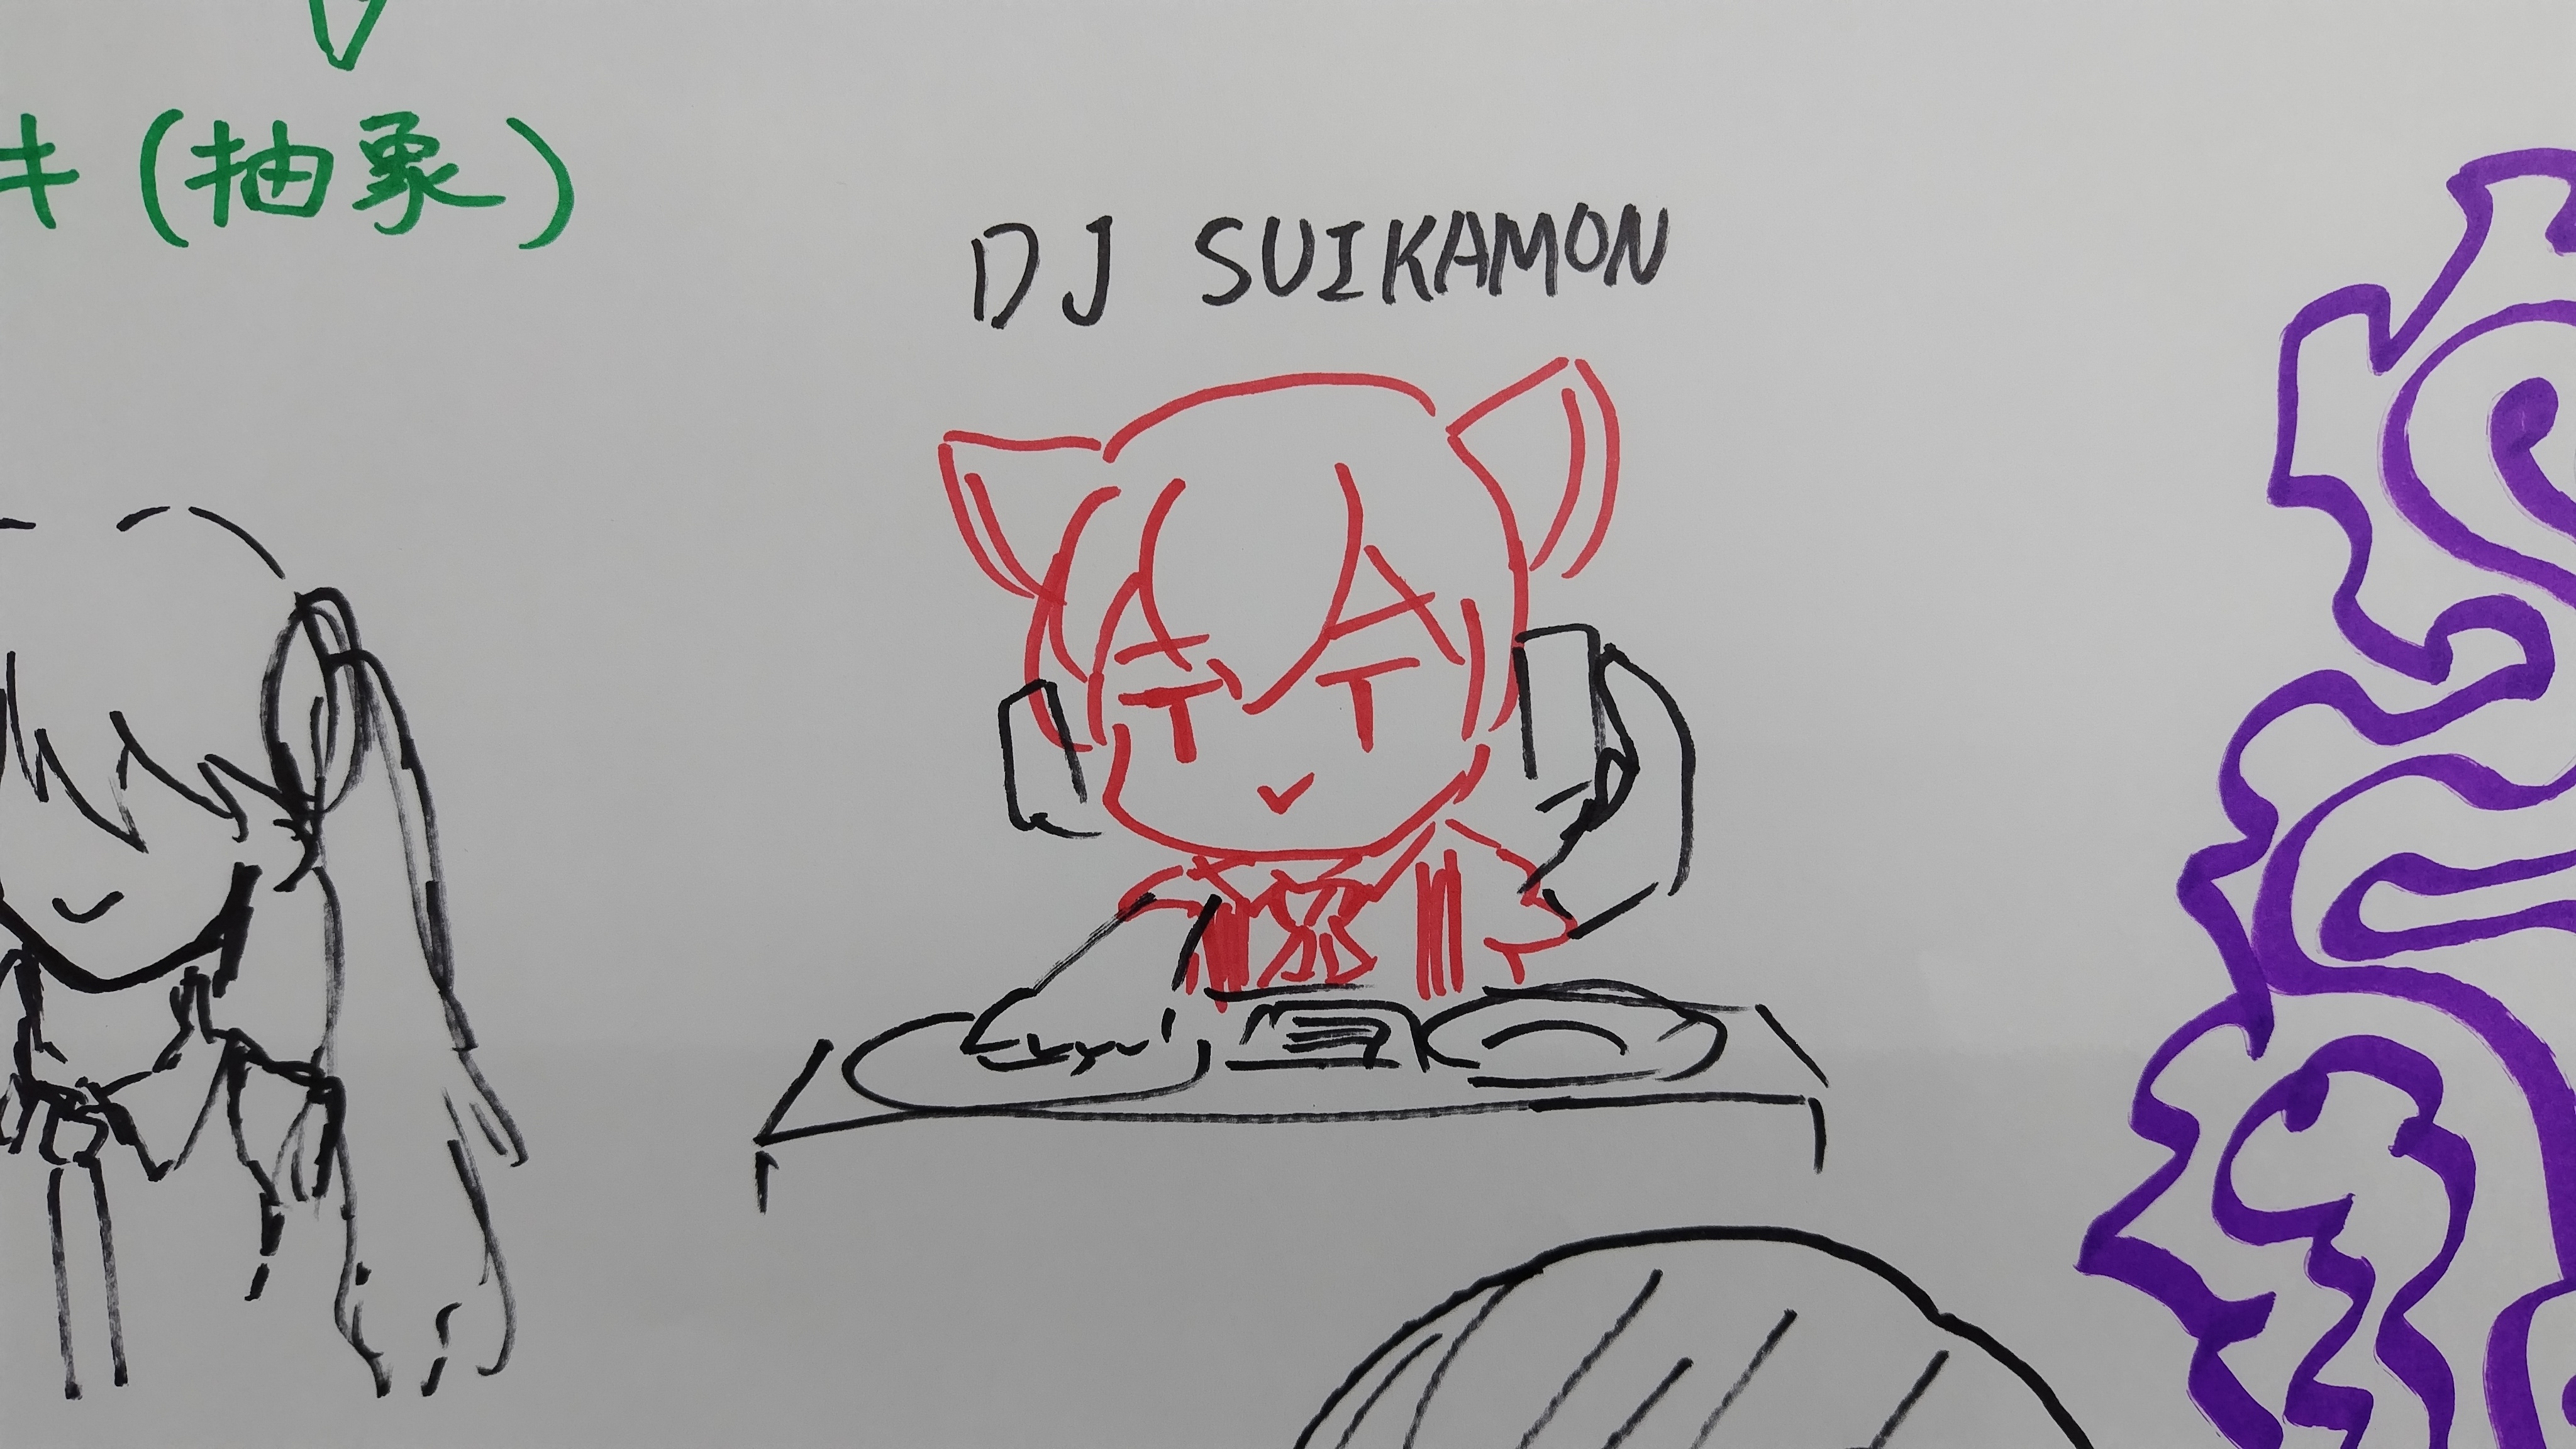 キ(抽象)
DJ SUIKAMON